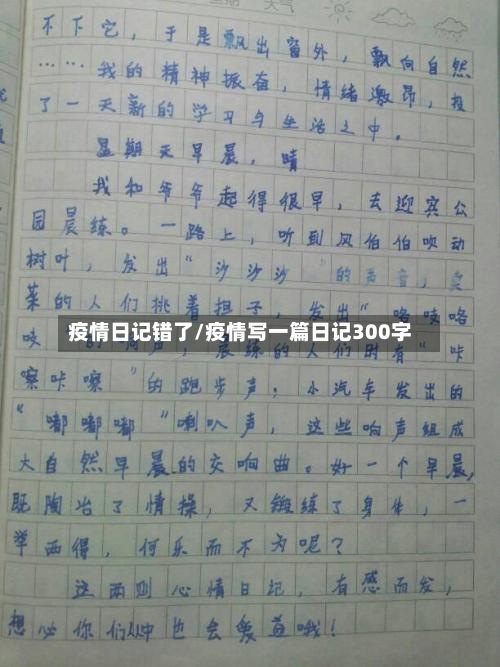 星期 天气
不下它，于是飘出窗外，飘向自然
……我的精神振奋，情绪激昂，投
了一天新的学习与生活之中。
星期天早晨，晴
我和爷爷起得很早，去迎宾公
园晨练。一路上，听到风伯伯吹动
树叶，发出“沙沙沙”的声音，卖
菜的人们挑着担子，发出“咯吱咯
吱”的 声，晨练的人们时有“咔
疫情日记错了/疫情写一篇日记300字
嚓咔嚓”的跑步声；小汽车发出的
“嘟嘟嘟”喇叭声，这些响声组成
大自然早晨的交响曲。好一个早晨，
既陶冶了情操，又锻练了身体，一
举两得，何乐而不为呢？
这两则心情日记，有感而发，
想必你们从中也会受益哦！